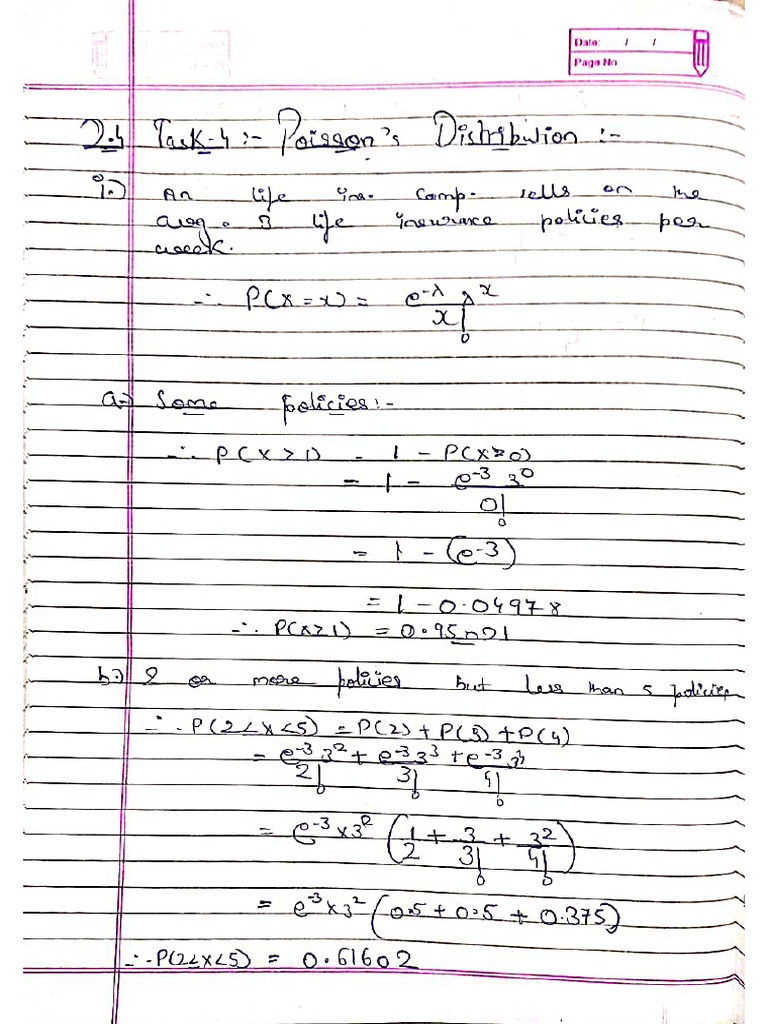 Date: / /
Page No
2.4 Task-4 :- Poisson's Distribution :-
i.) An life ins. comp. sells on the
avg. 3 life insurance policies per
week.
∴ P(X = x) = e^-λ λ^x / x!
a.) Some policies :-
∴ P(X > 1) = 1 - P(X = 0)
= 1 - e^-3 3^0 / 0!
= 1 - (e^-3)
= 1 - 0.04978
∴ P(X ≥ 1) = 0.95021
b.) 2 or more policies but less than 5 policies
∴ P(2 ≤ X < 5) = P(2) + P(3) + P(4)
= e^-3 3^2 / 2! + e^-3 3^3 / 3! + e^-3 3^4 / 4!
= e^-3 x 3^2 (1/2 + 3/3! + 3^2/4!)
= e^-3 x 3^2 (0.5 + 0.5 + 0.375)
∴ P(2 ≤ X < 5) = 0.61602